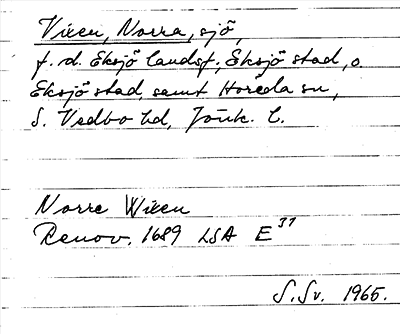 Vixen, Norra, sjö,
f.d. Eksjö landsf., Eksjö stad, o.
Eksjö stad samt Höreda sn,
S. Vedbo hd, Jönk. l.
Norre Wixen
Renov. 1689 LSA E 31
S.Sv. 1965.